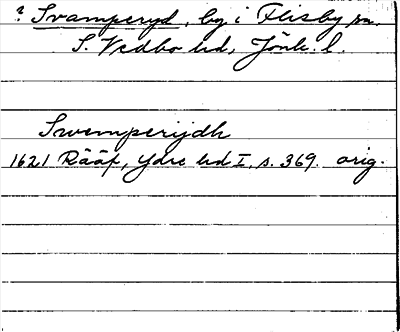 ? Svamperyd, by i Flisby sn.
S. Vedbo hd, Jönk. l.
Swemperijdh
1621 Rääf, Ydre hd I, s. 369. orig.